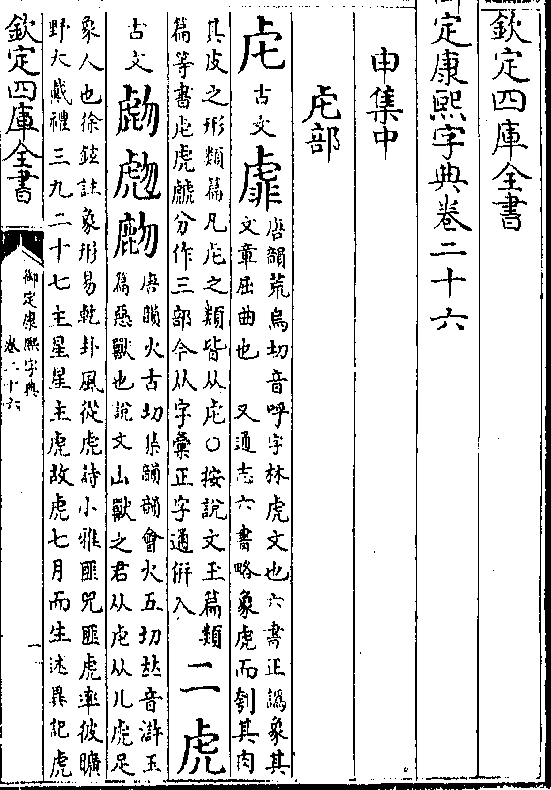 欽定四庫全書
御定康熙字典卷二十六
申集中
虍部
虍古文𧆠唐韻荒烏切音呼字林虎文也六書正譌象其
文章屈曲也 又通志六書略象虎而刳其肉
具皮之形類篇凡虍之類皆从虍○按說文玉篇類
篇等書虍虎虤分作三部今从字彙正字通倂入
二虎
古文𧆞𧇂𧇁唐韻火古切集韻韻會火五切𠀤音滸玉
篇惡獸也說文山獸之君从虍从儿虎足
象人也徐鉉註象形易乾卦風從虎詩小雅匪兕匪虎率彼曠
野大戴禮三九二十七主星星主虎故虎七月而生述異記虎
欽定四庫全書
御定康熙字典
卷二十六
一